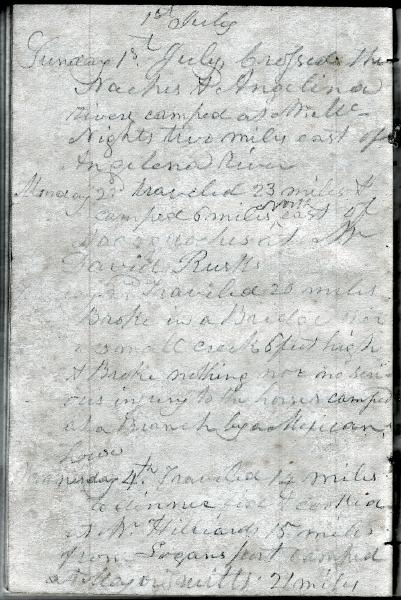 1st July
Sunday 1st July Crossed the
Naches & Angelina
rivers camped at Mr Mc
Nights two miles east of
Angelena river
Monday 2d traveled 23 miles &
camped 6 miles north east of
Nacogdoches at Mr
David Rusks
Traveled 20 miles
Broke in a Bridge
a small creek 6 feet high
& Broke nothing nor no seri
ous injury to the horses camped
at a Branch by a Mexican
house
Wednesday 4th Traveled 14 miles
a dinner &
at Mr Hilliards 15 miles
from Logansport camped
at Major 21 miles